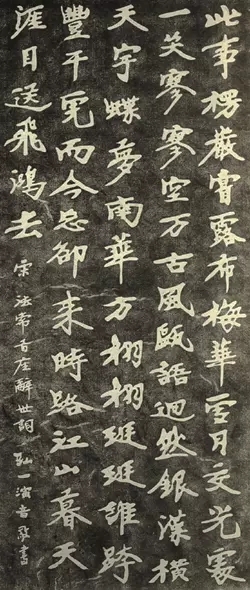 此事楞嚴嘗露布梅華雪月交光處
一笑寥寥空万古風甌語迥然銀漢橫
天宇蝶夢南華方栩栩珽珽誰跨
豐干虎而今忘卻来時路江山暮天
涯目送飛鴻去
宋法常首座辭世詞弘一演音敬書